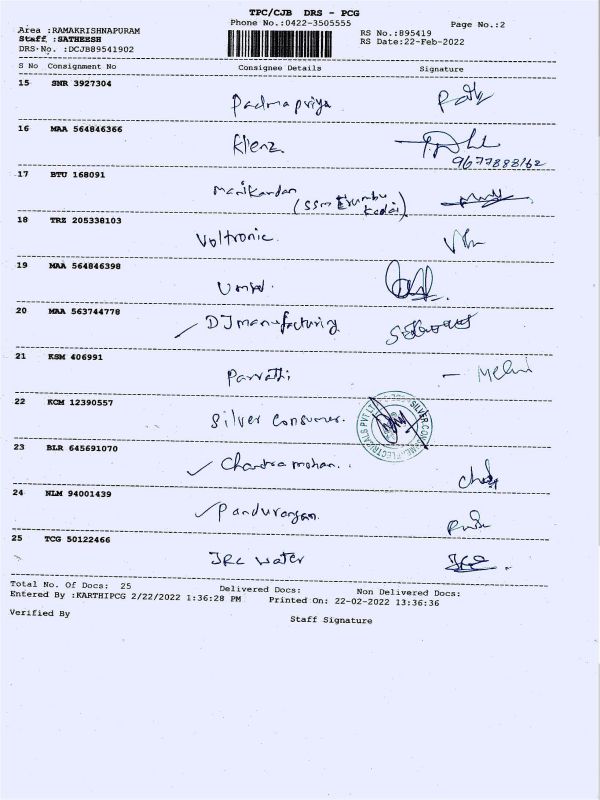 TPC/CJB DRS - PCG
Phone No.:0422-3505555
Page No.:2
Area :RAMAKRISHNAPURAM
Staff :SATHEESH
DRS No. :DCJB89541902
RS No.:895419
RS Date:22-Feb-2022
S No Consignment No Consignee Details Signature
15 SNR 3927304
Padmapriya
16 MAA 564846366
Klenz
9677888162
17 BTU 168091
Manikandan
(SSM Erumbu
Kadai)
18 TRZ 205338103
Voltronic
19 MAA 564846398
20 MAA 563744778
DJ manufacturing
21 KSM 406991
Parvathi
22 KCM 12390557
Silver Consumer.
23 BLR 645691070
Chandra mohan..
24 NLM 94001439
Pandurangan
25 TCG 50122466
JRC water
Total No. Of Docs: 25 Delivered Docs: Non Delivered Docs:
Entered By :KARTHIPCG 2/22/2022 1:36:28 PM Printed On: 22-02-2022 13:36:36
Verified By
Staff Signature